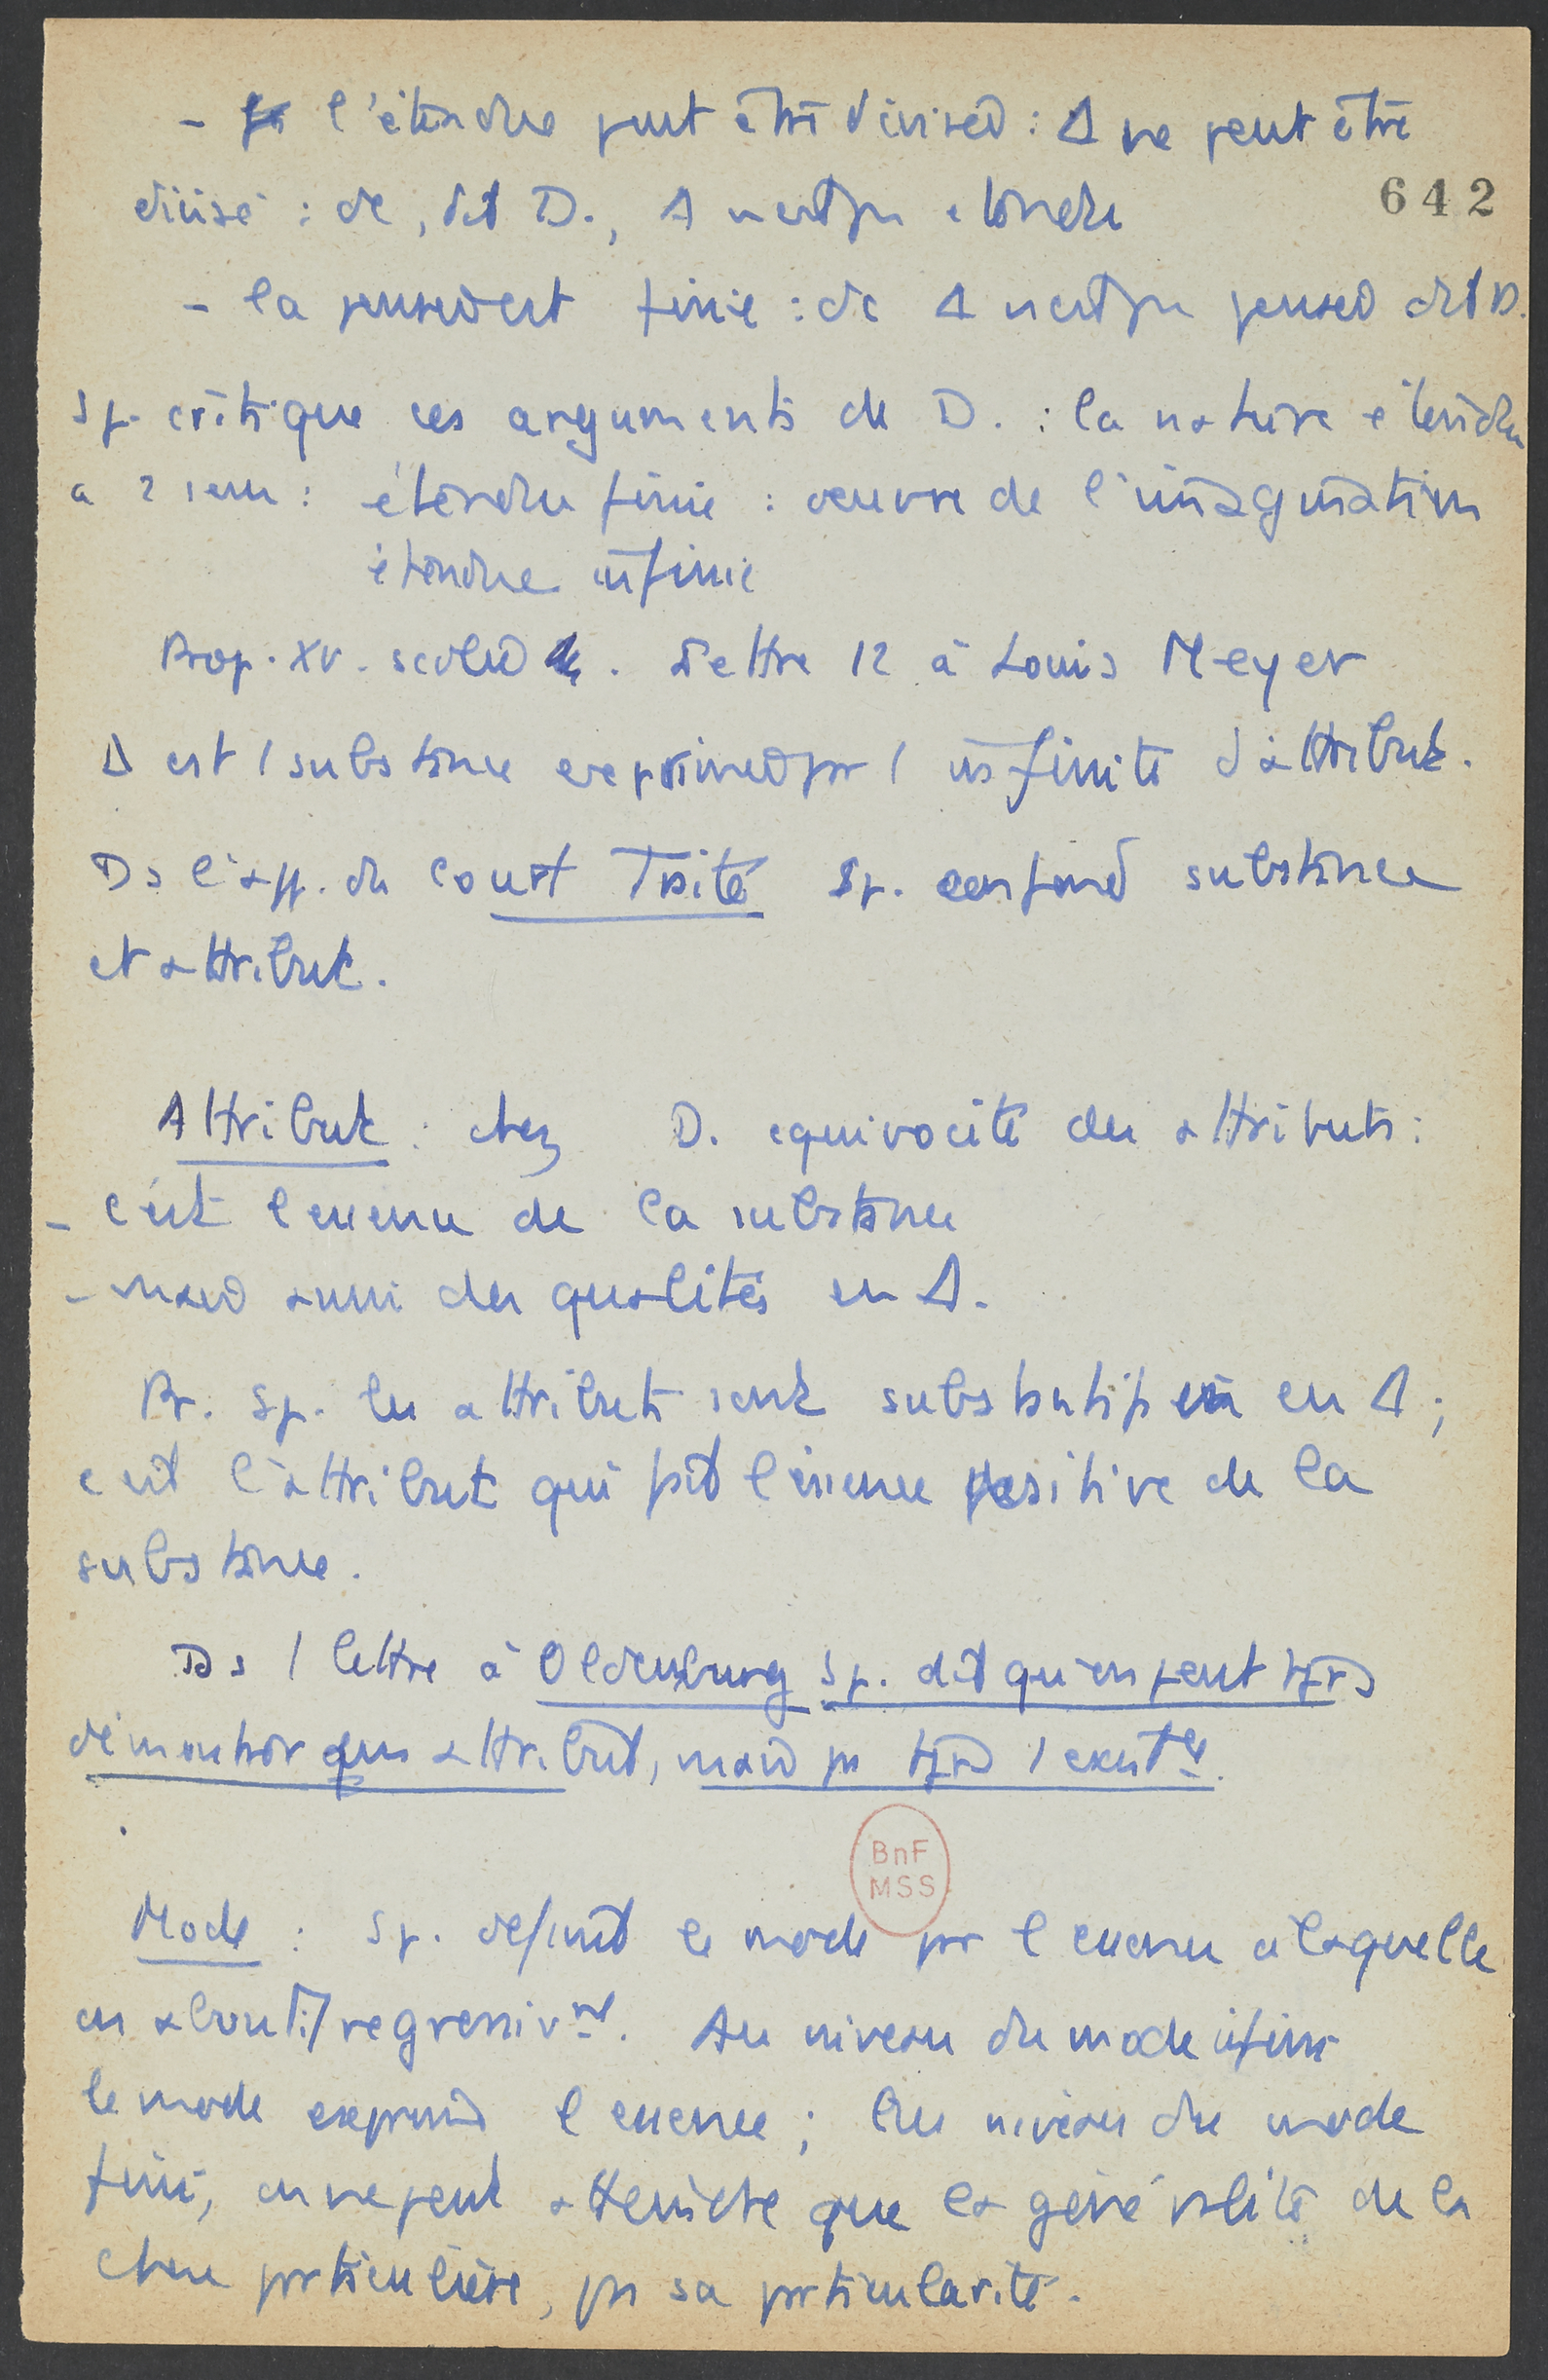 - l'étendue peut être divisée : Δ ne peut être
642
divisé : dc, dit D., Δ n'est pas étendu
- la pensée est finie : dc Δ n'est pas pensée dit D.
Sp. critique ces arguments de D. : la nature étendue
a 2 sens : étendue finie : oeuvre de l'imagination
étendue infinie
Prop. XV. scolie. Lettre 12 à Louis Meyer
Δ est / substance exprimée par / infinité d'attributs.
Ds l'app. du Court Traité Sp. confond substance
et attribut.
Attribut : chez D. équivocité des attributs :
- c'est l'essence de la substance
- mais aussi des qualités en Δ.
Pr. Sp. les attributs sont substantifs en Δ ;
c'est l'attribut qui fait l'essence positive de la
substance.
Ds / lettre à Oldenburg Sp. dit qu'on peut tjrs
démontrer attribut, mais pas tjrs / existce.
BnF
MSS
Mode : Sp. définit le mode par l'essence à laquelle
on aboutit regressivnt. Au niveau du mode infini
le mode exprime l'essence ; au niveau du mode
fini, on ne peut atteindre que la généralité de la
chose particulière, pas sa particularité.